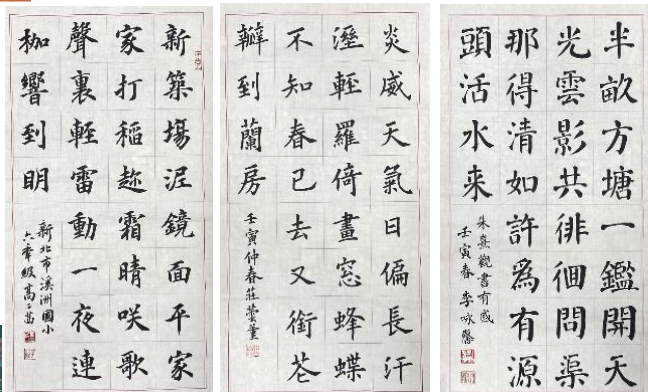 半畝方塘一鑑開天
光雲影共徘徊問渠
那得清如許爲有源
頭活水来
朱熹觀書有感
壬寅春 李咏馨
炎威天氣日偏長汗
溼輕羅倚畫窓蜂蝶
不知春已去又銜芲
瓣到蘭房
壬寅仲春莊
新築場泥鏡面平家
家打稻趂霜晴咲歌
聲裏輕雷動一夜連
枷響到明
新北市溪洲國小
六年級高